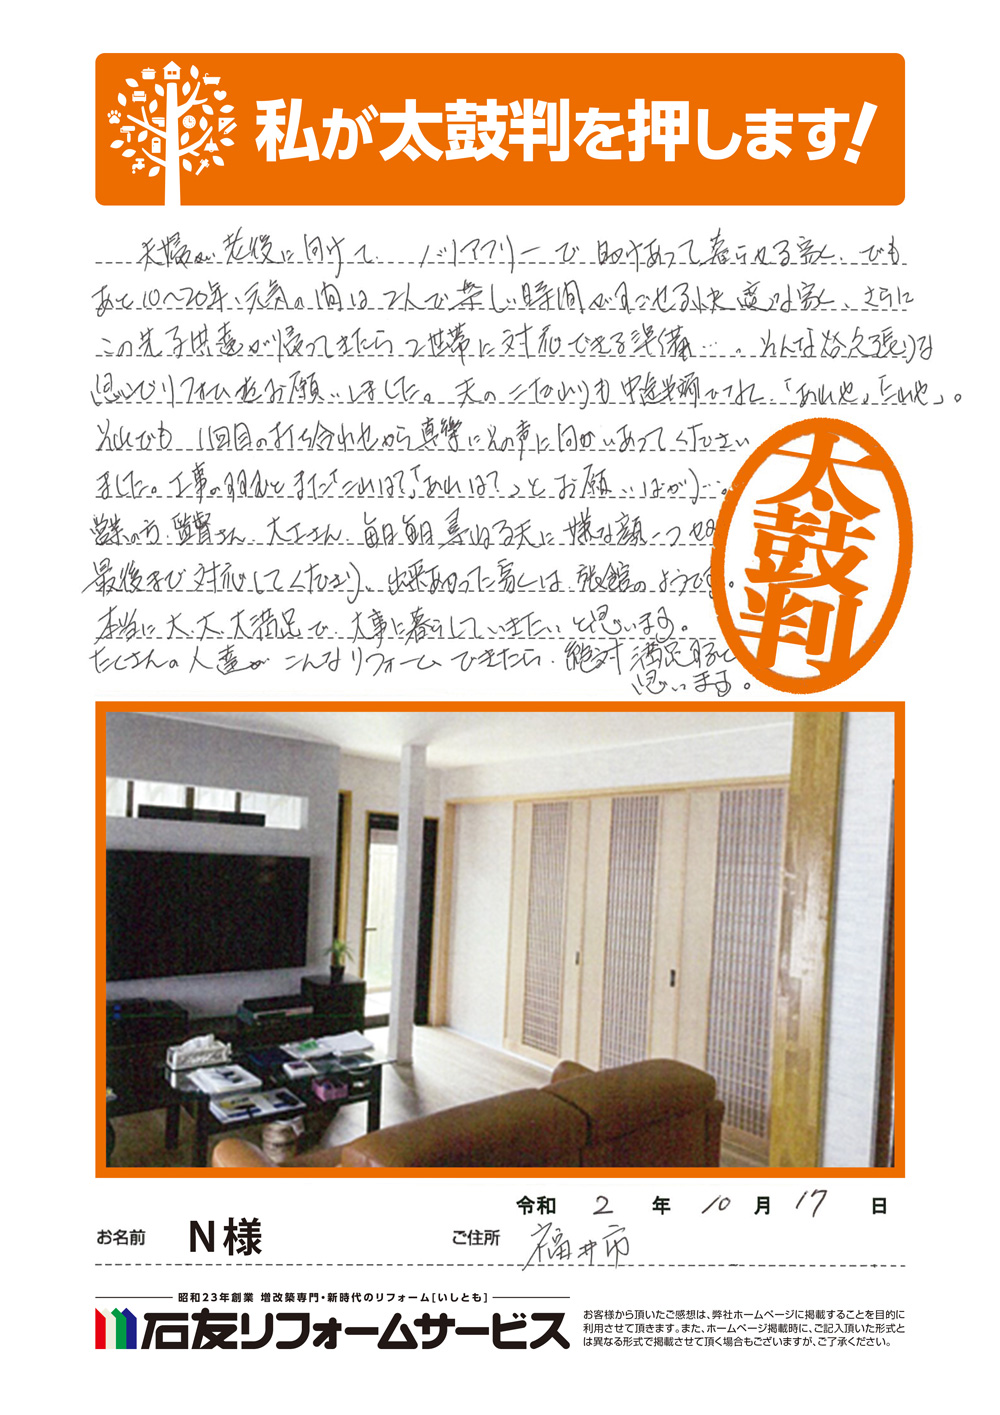 私が太鼓判を押します!
夫婦の老後に向けて、バリアフリーで助けあって暮らせる家に、でも
あと10〜20年、元気な間は2人で楽しい時間がすごせる快適な家に、さらに
この先子供達が帰ってきたら2世帯に対応できる準備…。そんな欲張りな
思いでリフォームをお願いしました。夫のこだわりも中途半端でなく、「あれや」「これや」。
それでも1回目の打ち合わせから真摯にその声に向かいあってください
ました。工事の間もまた「これは?」「あれは?」とお願いばかり…。
営業の方、監督さん、大工さん、毎日毎日尋ねる夫に嫌な顔一つせず
最後まで対応してくださり、出来あがった家は旅館のようです。
本当に大、大、大満足で、大事に暮らしていきたいと思います。
たくさんの人達がこんなリフォームできたら、絶対満足すると
思います。
太鼓判
令和 2 年 10 月 17 日
お名前 N様 ご住所 福井市
昭和23年創業 増改築専門・新時代のリフォーム[いしとも]
石友リフォームサービス
お客様から頂いたご感想は、弊社ホームページに掲載することを目的に
利用させて頂きます。また、ホームページ掲載時に、ご記入頂いた形式と
は異なる形式で掲載させて頂く場合もございますが、ご了承ください。